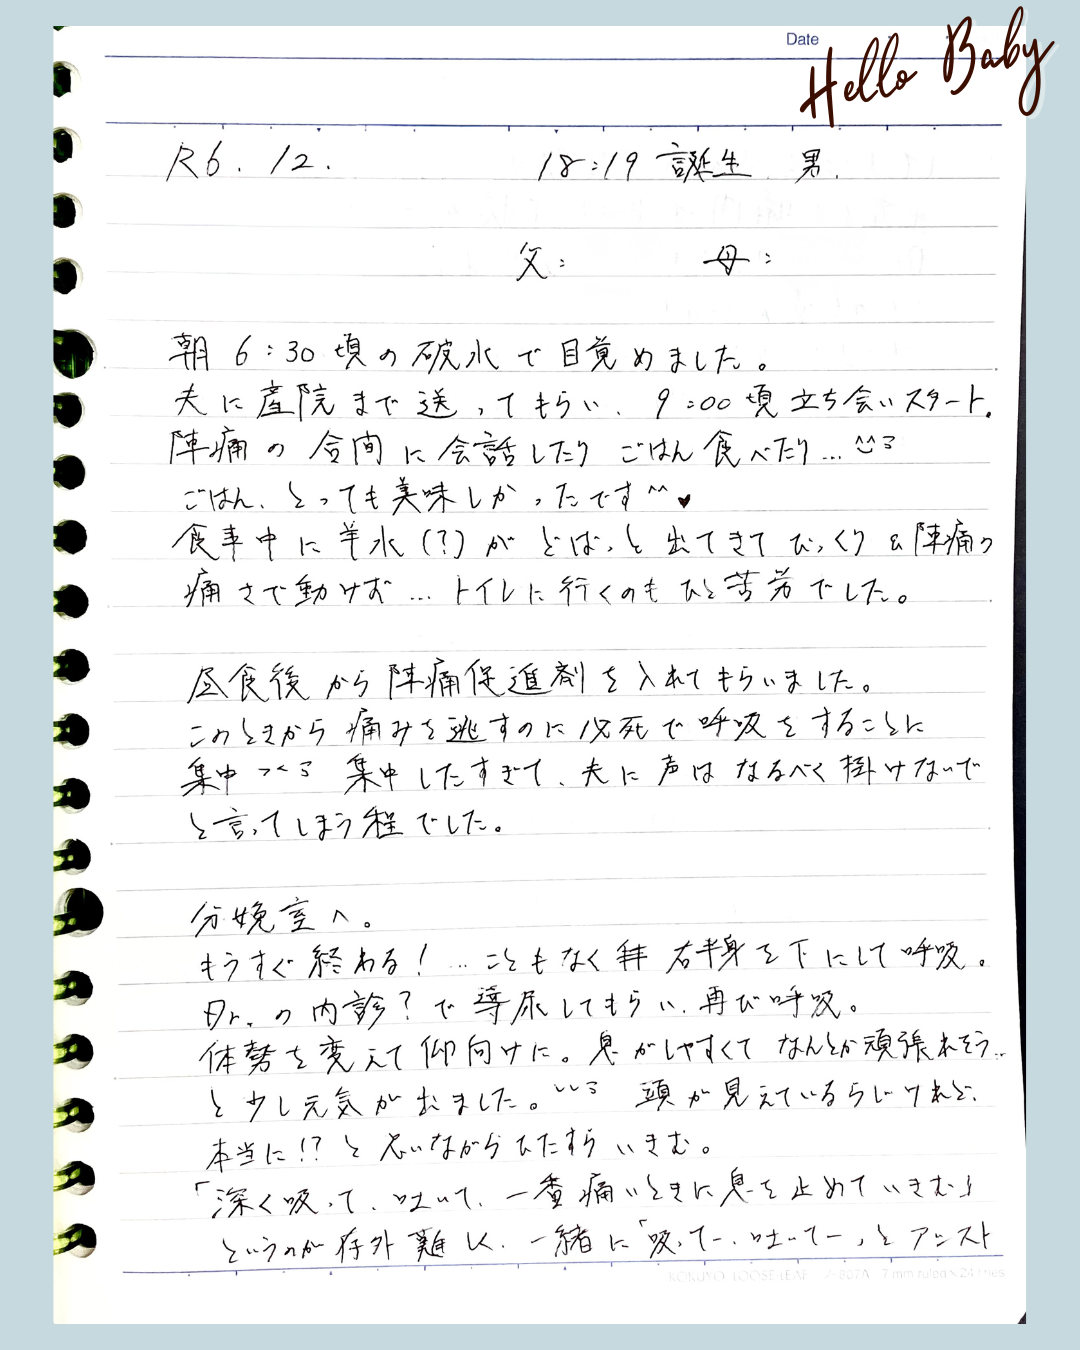 Date
Hello Baby
R6.12.　18:19 誕生　男.
父:　母:
朝 6:30 頃の破水で目覚めました。
夫に産院まで送ってもらい、9:00頃立ち会いスタート。
陣痛の合間に会話したりごはん食べたり…^^
ごはん、とっても美味しかったです^^♥
食事中に羊水(?)がどばっと出てきてびっくり&陣痛の
痛さで動けず…トイレに行くのもひと苦労でした。
昼食後から陣痛促進剤を入れてもらいました。
このときから痛みを逃すのに必死で呼吸をすることに
集中 集中したすぎて、夫に声はなるべく掛けないで
と言ってしまう程でした。
分娩室へ。
もうすぐ終わる!…こともなく 右半身を下にして呼吸。
Dr.の内診?で導尿してもらい、再び呼吸。
体勢を変えて仰向けに。息がしやすくてなんとか頑張れそう…
と少し元気が出ました。 頭が見えているらしいけれど、
本当に!?と思いながらひたすらいきむ。
「深く吸って、吐いて、一番痛いときに息を止めていきむ」
というのが存外難しく、一緒に「吸ってー、吐いてー」とアシスト
KOKUYO LOOSE-LEAF ノ-807A 7 mm ruled × 24 lines